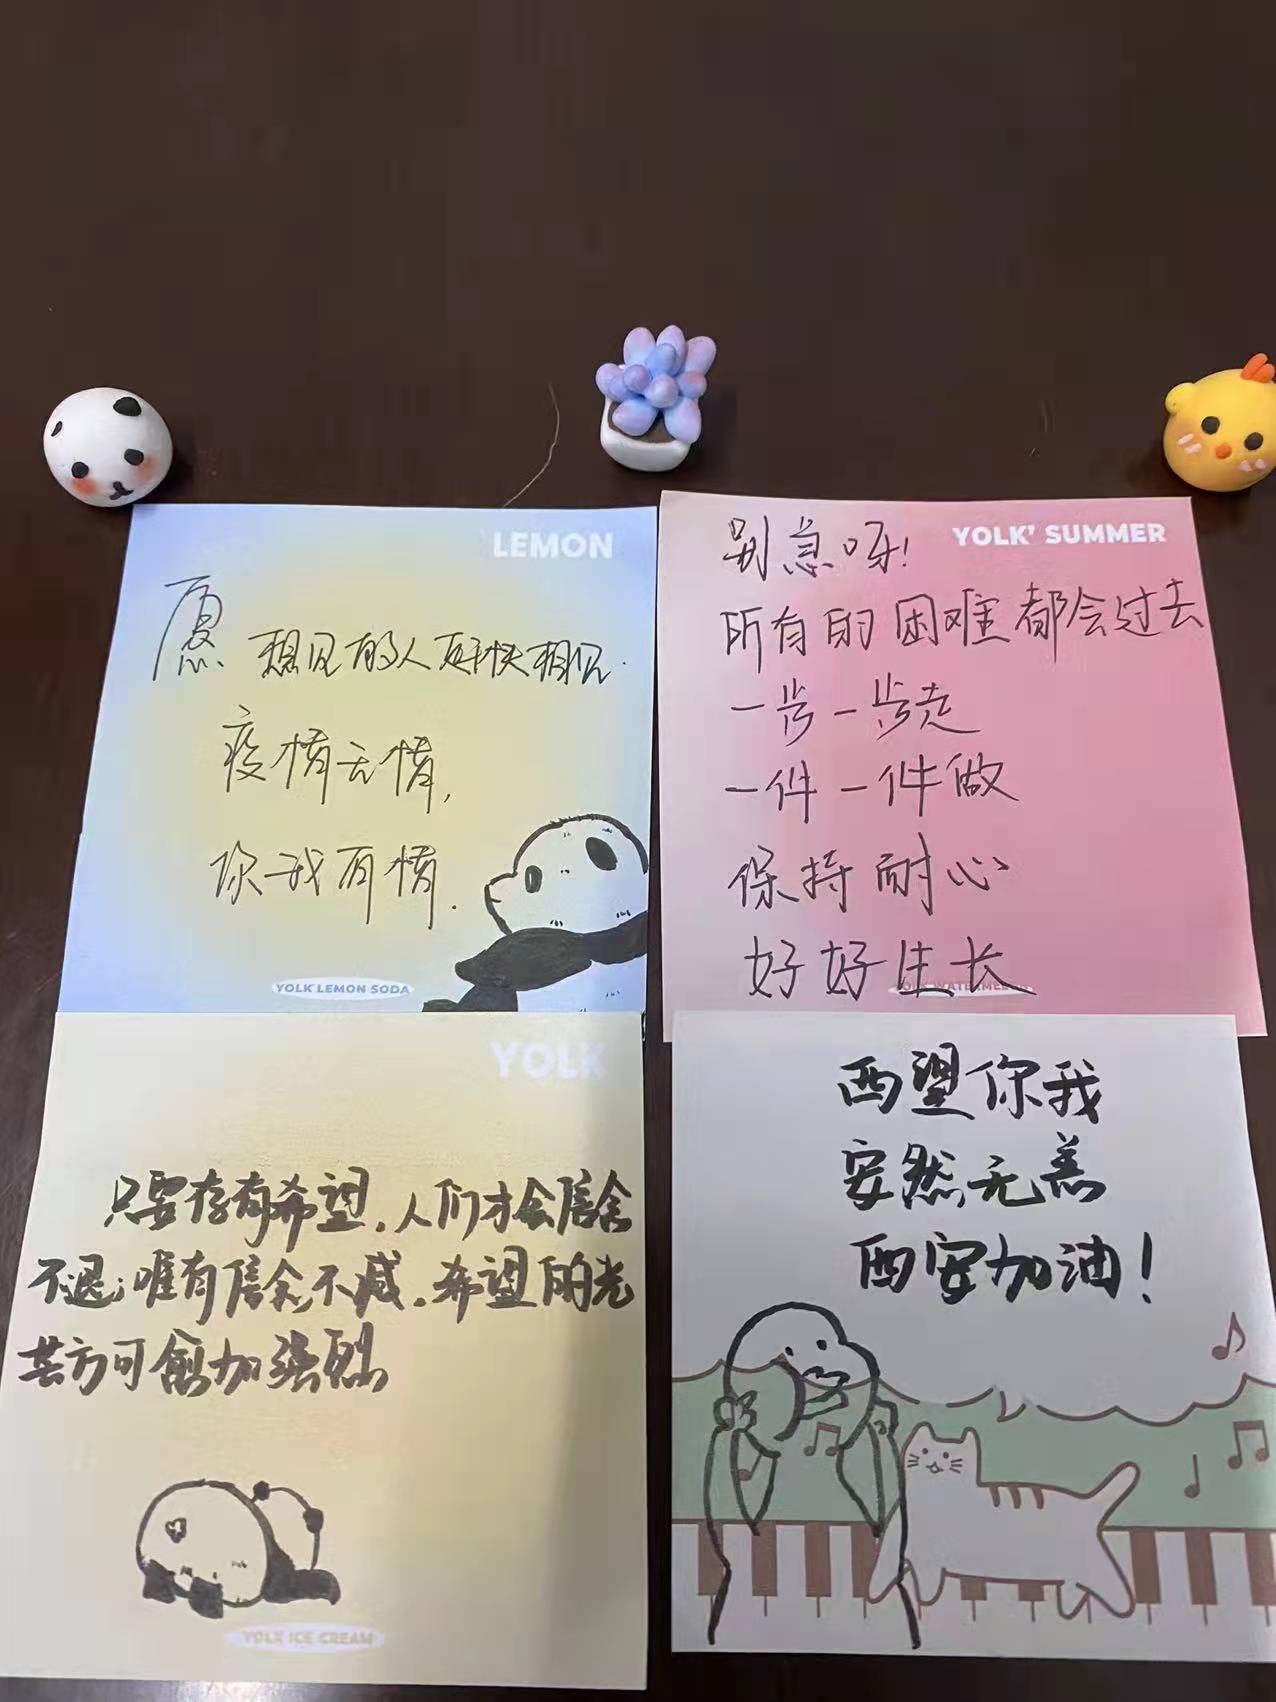 LEMON
愿 想见的人赶快相见.
疫情无情,
你我有情.
YOLK LEMON SODA
YOLK' SUMMER
别急呀!
所有的困难都会过去
一步一步走
一件一件做
保持耐心
好好生长
YOLK WATERMELON
YOLK
只要存有希望,人们才会信念
不退;唯有信念不减,希望的光
芒方可愈加强烈
YOLK ICE CREAM
西望你我
安然无恙
西安加油!